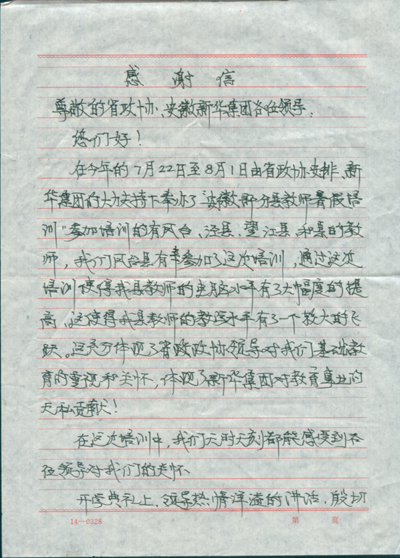 感谢信
尊敬的省政协、安徽新华集团各位领导:
您们好!
在今年的7月22日至8月1日由省政协安排、新
华集团的大力支持下举办了“安徽部分县教师暑假培
训”参加培训的有凤台、泾县、望江县和某的教
师,我们凤台县有幸参加了这次培训,通过这次
培训使得我县教师的业务水平有了大幅度的提
高。这使得我县教师的教学水平有了一个较大的飞
跃。这充分体现了省政协领导对我们基础教
育的重视和关怀,体现了新华集团对教育事业的
无私贡献!
在这次培训中,我们无时无刻都能感受到各
位领导对我们的关怀。
开学典礼上,领导热情洋溢的讲话,殷切
14—0328 第 页